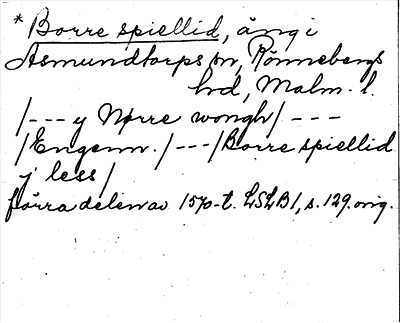 * Borre spiellid, äng i
Asmundtorps sn, Rönnebergs
hd, Malm. l.
/--- y Nørre wongh/ ---
/Engenn./---/Borre spiellid
j less/
förra delen av 1570-t. LSLB1, s. 129. orig.